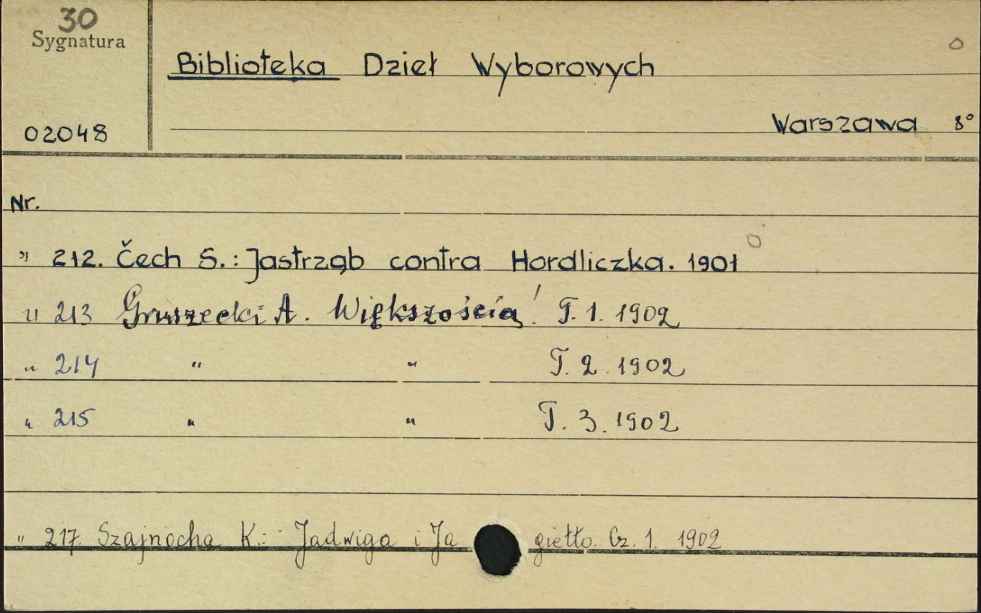 30
Sygnatura
Biblioteka Dzieł Wyborowych
02048
Warszawa 8°
Nr.
" 212. Čech S.: Jastrząb contra Hordliczka. 1901
" 213 Gruszecki A. Większością! T. 1. 1902
" 214 " " T. 2. 1902
" 215 " " T. 3. 1902
" 217. Szajnocha K.: Jadwiga i Ja giełło. Cz. 1. 1902